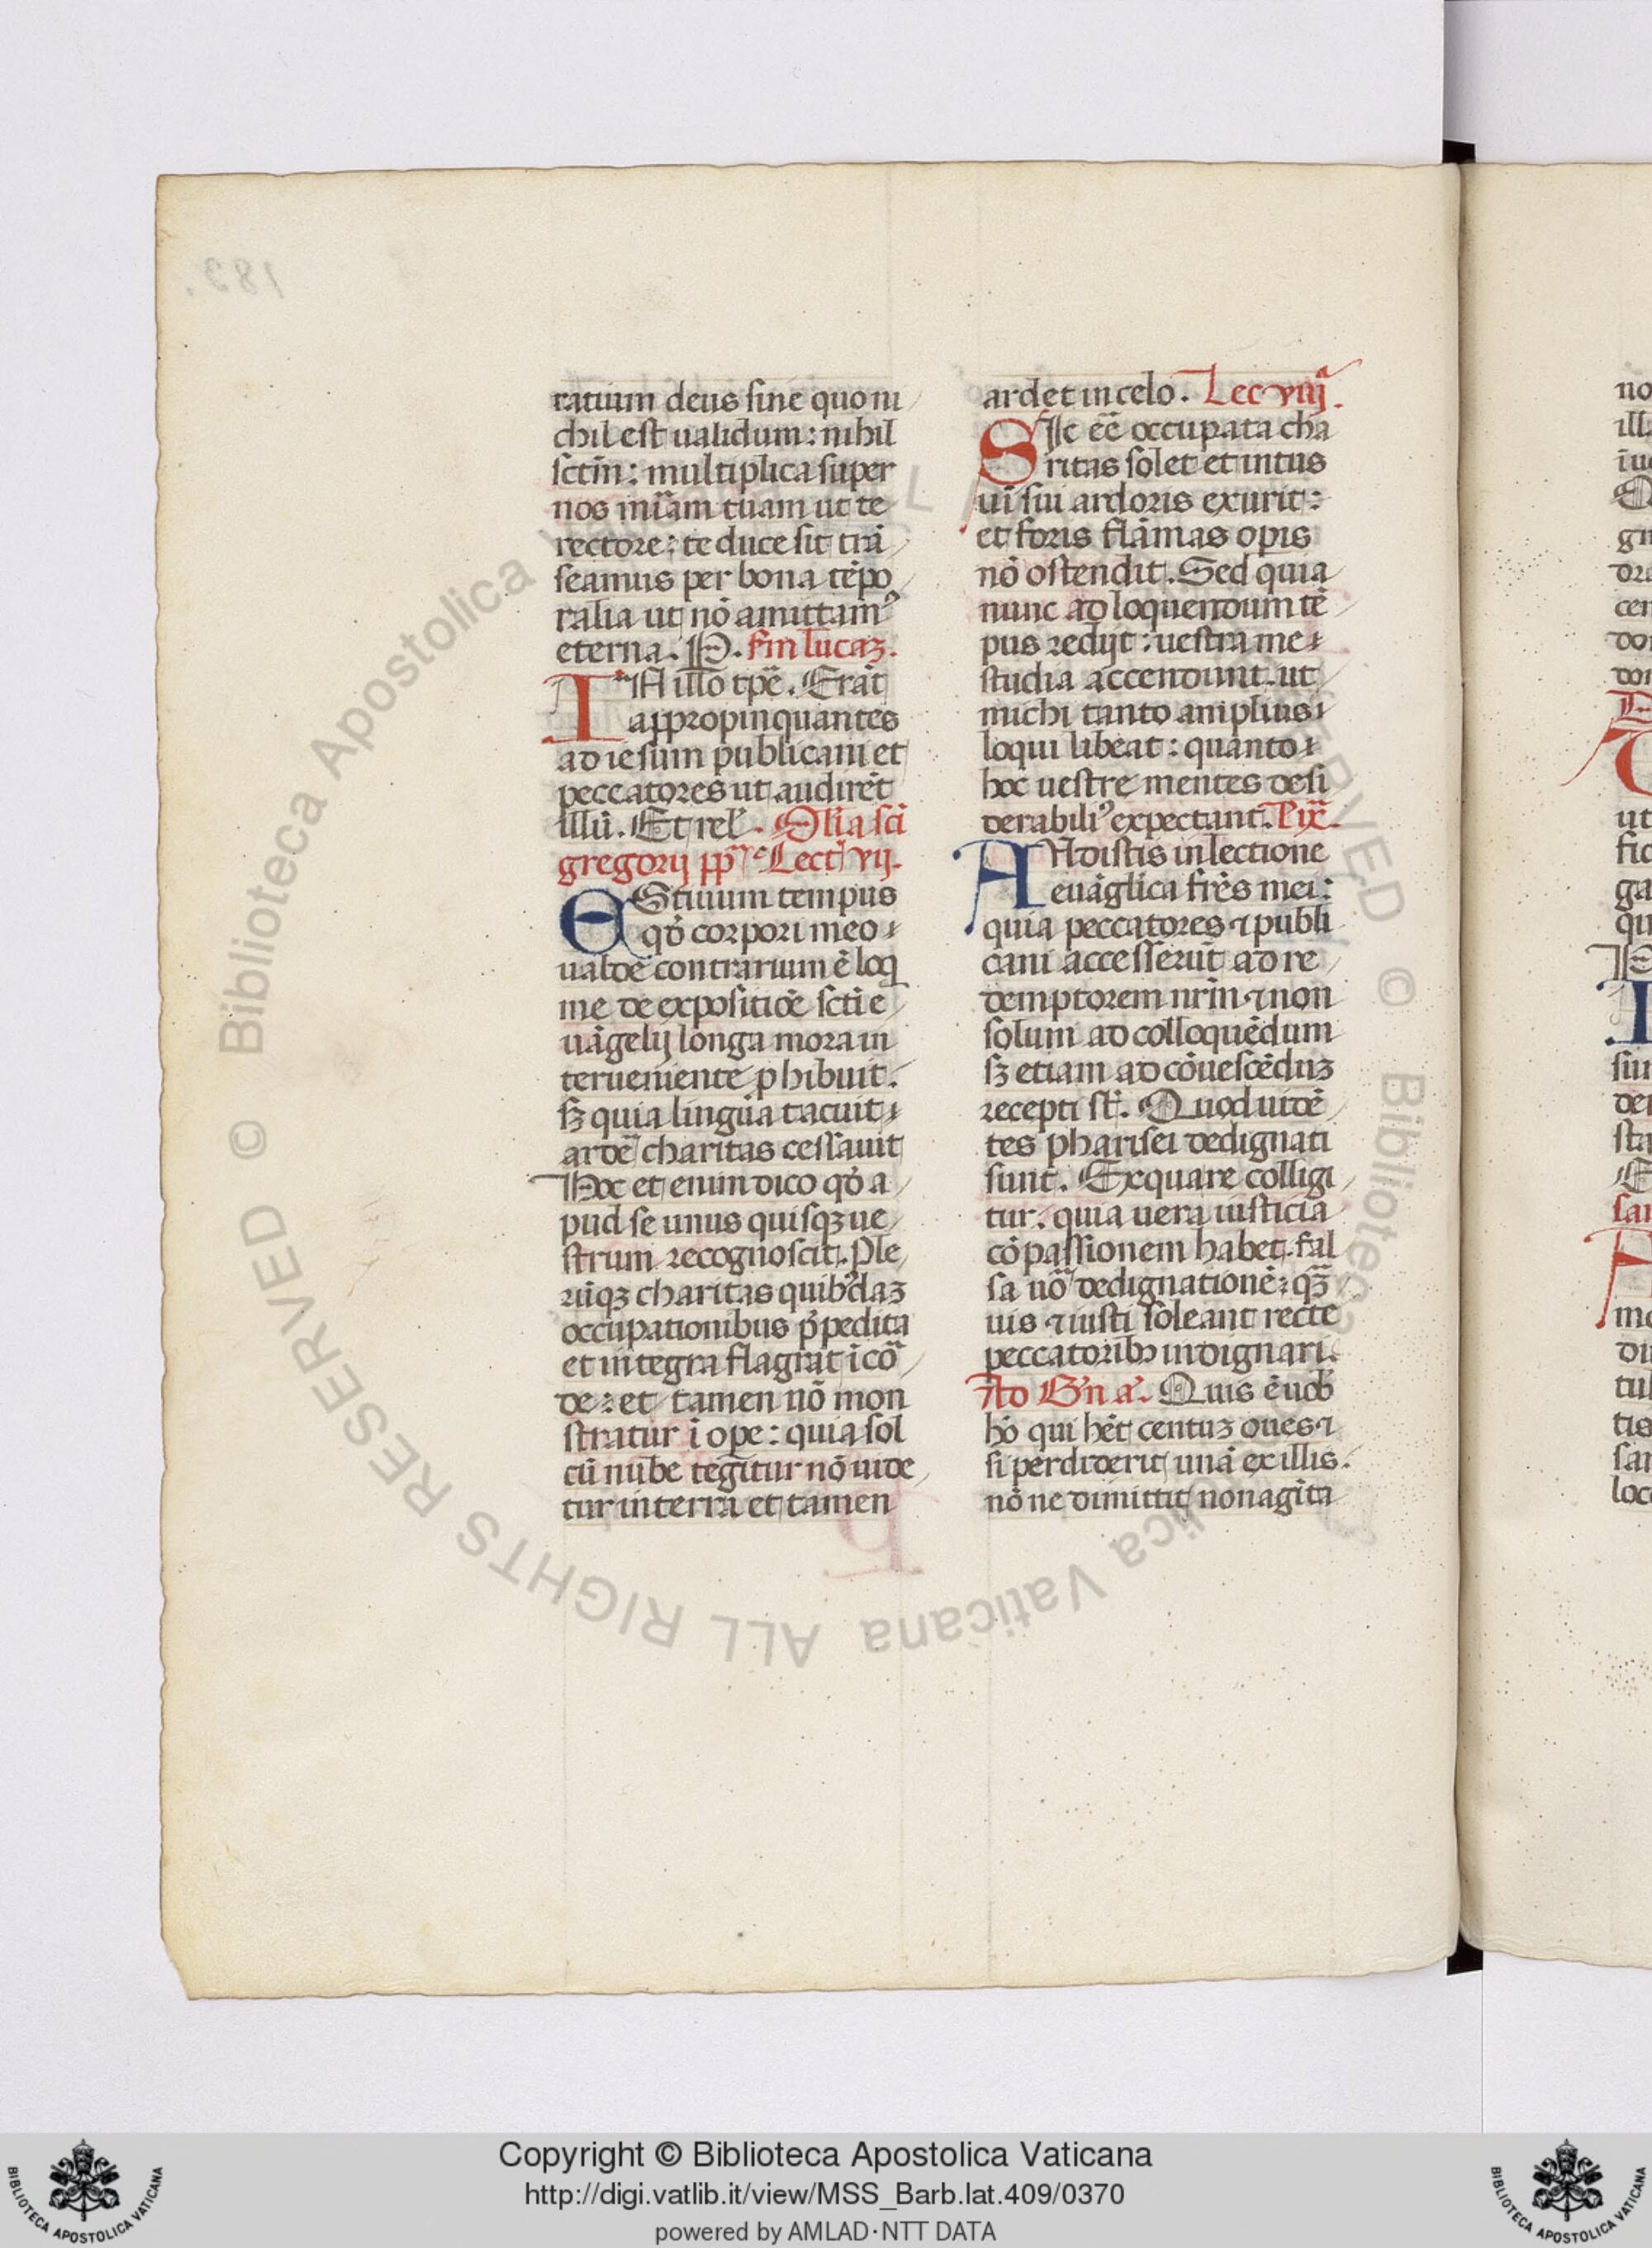 183.
ratium deus sine quo ni
chil est ualidum: nihil
sctm̄: multiplica super
nos mīam tuam ut te
rectore: te duce sit trā
seamus per bona tēpo
ralia ut nō amittamꝰ
eterna. P. Sm̄ lucaꝫ.
IN illo tpē. Erāt
appropinquantes
ad iesum publicani et
peccatores ut audirēt
illū. Et rel̄. Olia sci
gregorij pp̄e Lect̄ vij.
EStiuum tempus
qđ corpori meo
ualde contrarium ē loq̄
me de expositiōe scti e
uāgelij longa mora in
terueniente ꝓhibuit.
sꝫ quia lingua tacuit
ardē charitas cessauit
Hoc et enim dico qđ a
pud se unus quisqꝫ ue
strum recognoscit. Ple
rūqꝫ charitas quibꝰdaꝫ
occupationibus p̄pedita
et integra flagrat ī cō
de: et tamen nō mon
stratur ī ope: quia sol
cū nube tegitur nō uide
tur in terra et tamen
ardet in celo. Lec viij.
SIc eē occupata cha
ritas solet et intus
ui sui ardoris exurit:
et foris flāmas opis
nō ostendit. Sed quia
nunc ad loquendum tē
pus redijt: uestra me
studia accendunt. ut
michi tanto amplius
loqui libeat: quanto
hoc uestre mentes desi
derabiliꝰ expectant. L ix.
AUdistis in lectione
euāglica frēs mei:
quia peccatores ⁊ publi
cani accesserūt ad re
demptorem nrm̄ ⁊ non
solum ad colloquēdum
sꝫ etiam ad cōuescēduꝫ
recepti st̄. Quod uidē
tes pharisei dedignati
sunt. Ex quare colligi
tur. quia uera iusticia
cōpassionem habet. fal
sa uō dedignationē: qꝫ̄
uis ⁊ iusti soleant recte
peccatoribꝫ indignari.
Ad Bn̄ a. Quis ē uob̄
hō qui hēt centuꝫ oues ⁊
si perdiderit unā ex illis.
nō ne dimittit nonagīta
Copyright © Biblioteca Apostolica Vaticana
http://digi.vatlib.it/view/MSS_Barb.lat.409/0370
powered by AMLAD·NTT DATA
BIBLIOTECA APOSTOLICA VATICANA
BIBLIOTECA APOSTOLICA VATICANA
© Biblioteca Apostolica Vaticana ALL RIGHTS RESERVED